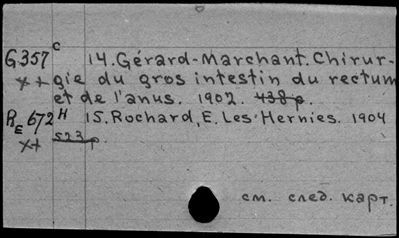 G357 C 14. Gérard-Marchant. Chirur-
xx gie du gros intestin du rectum
et de l'anus. 1902. 438 p.
RE 672 H 15. Rochard, E. Les Hernies. 1904
xx 523 p.
см. след. карт.